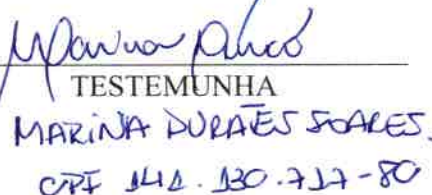 TESTEMUNHA
MARINA DURÃES SOARES.
CPF 141.130.717-80